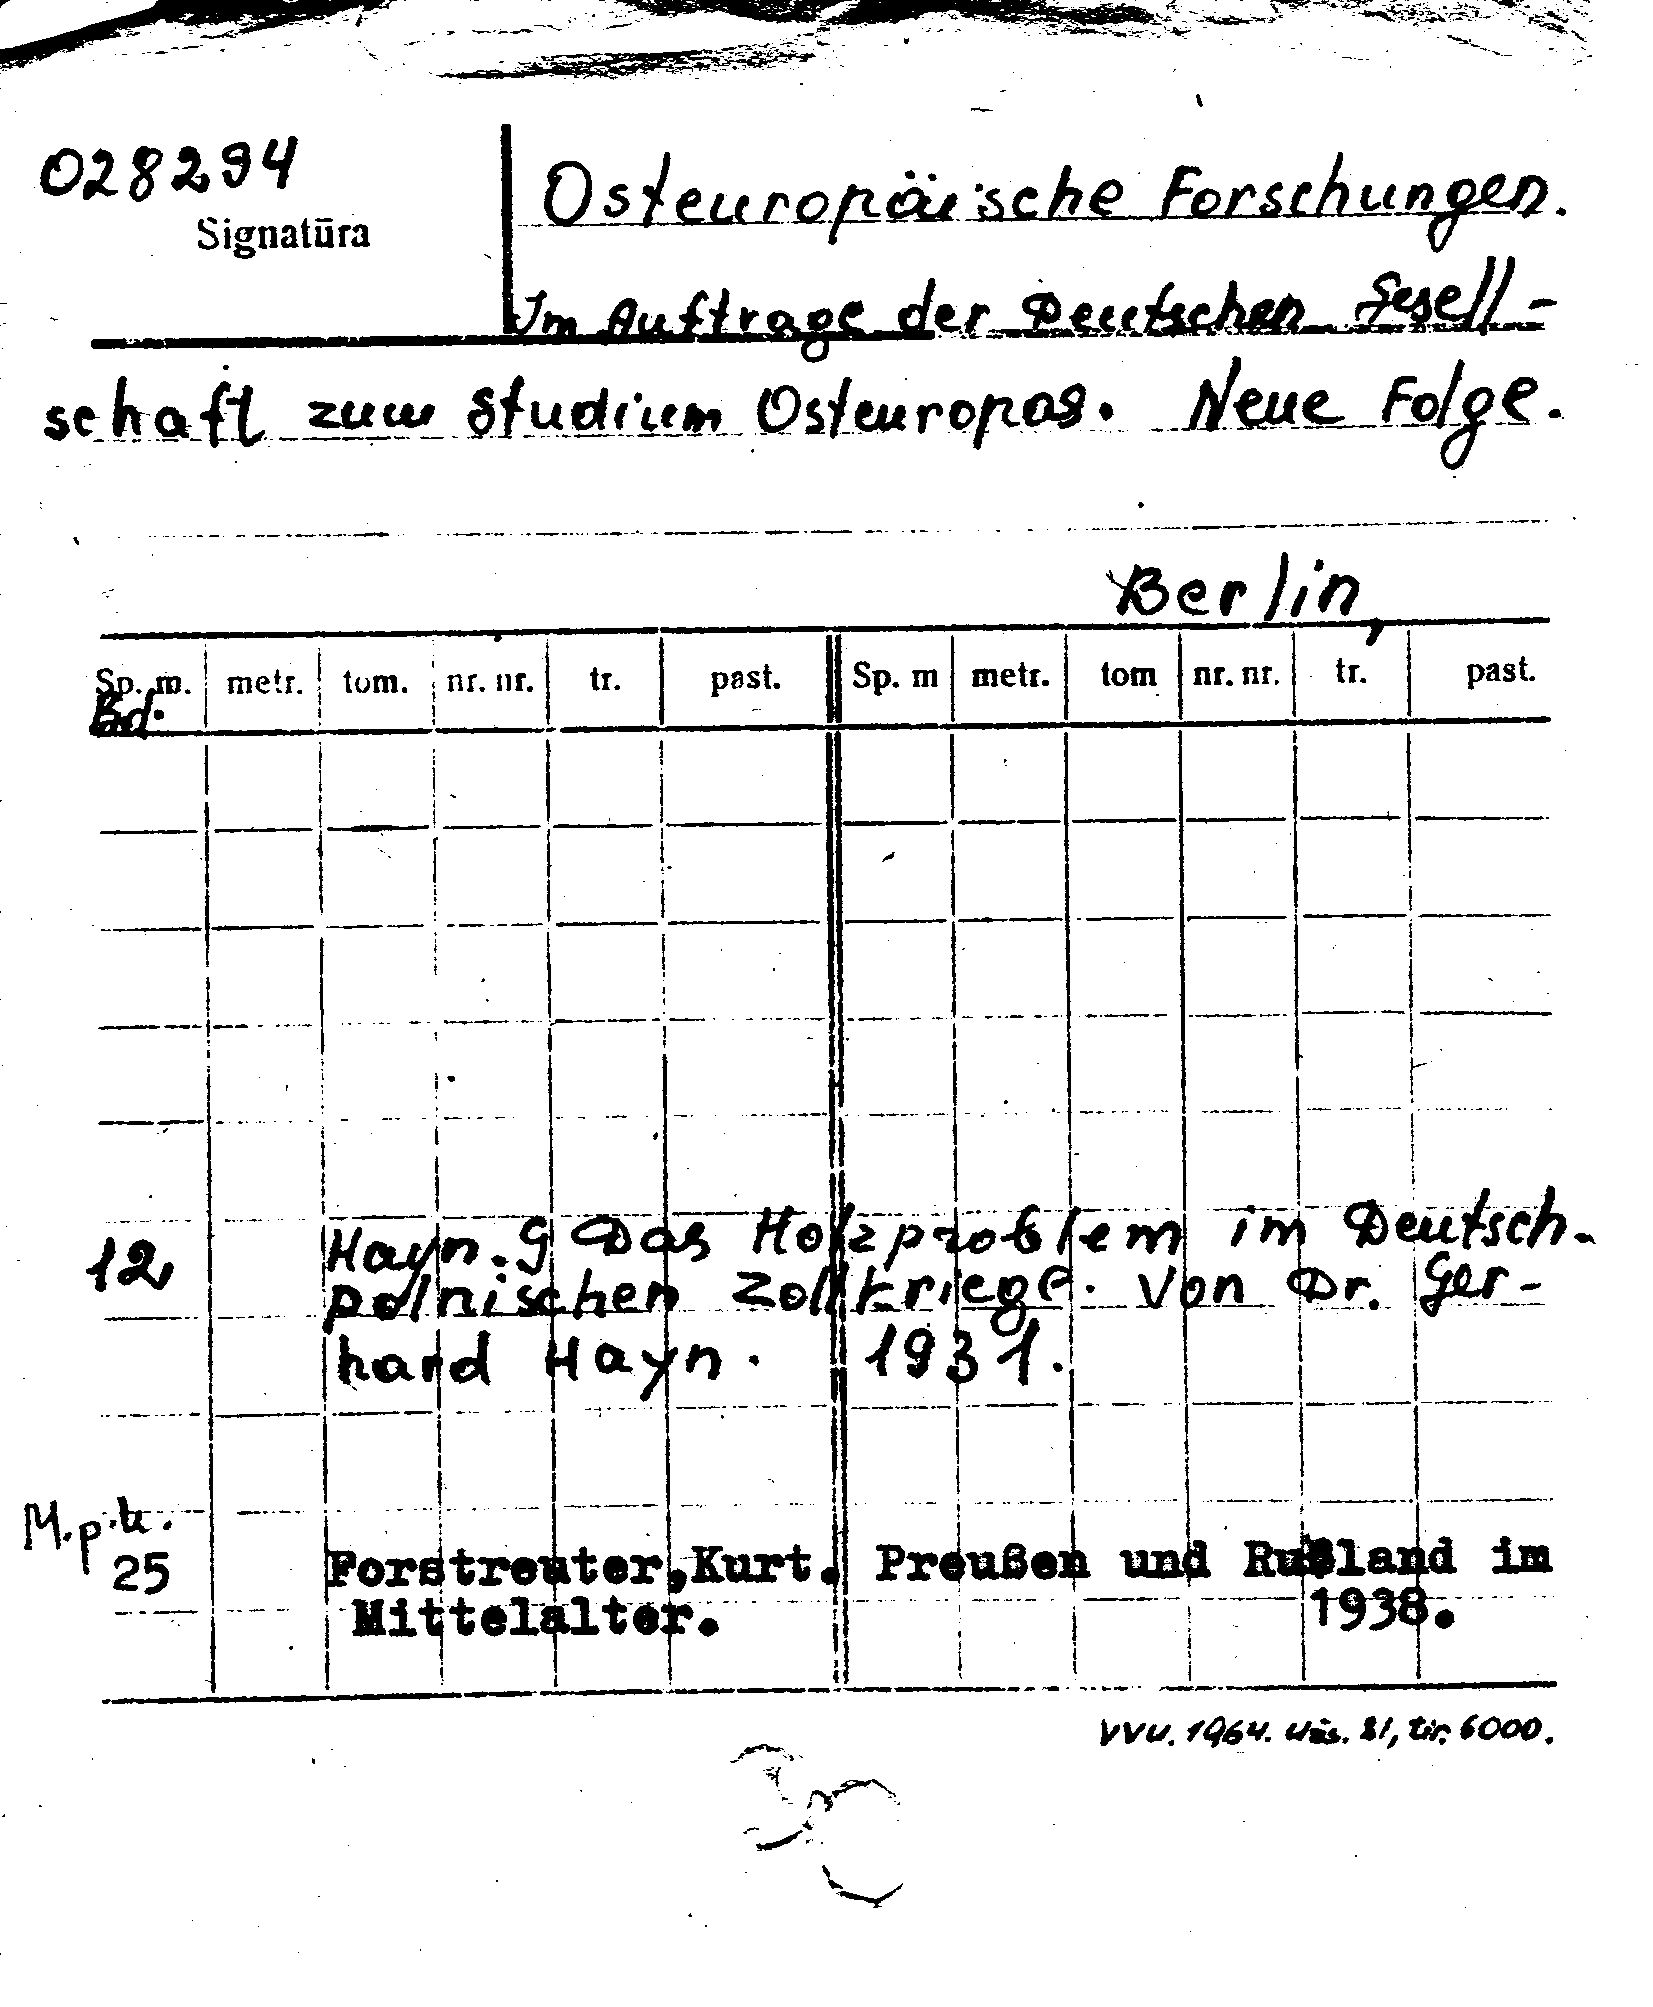 028294
Signatūra
Osteuropäische Forschungen.
Im Auftrage der Deutschen Gesell-
schaft zum Studium Osteuropas. Neue Folge.
Berlin,
Sp. m. metr. tom. nr. nr. tr. past. Sp. m metr. tom nr. nr. tr. past.
Bd.
12 Hayn. G Das Holzproblem im Deutsch-
polnischen Zollkriege. Von Dr. Ger-
hard Hayn. 1931.
25 Forstreuter,Kurt. Preußen und Rußland im
Mittelalter. 1938.
VVU. 1964. Uzs. 81, tir. 6000.